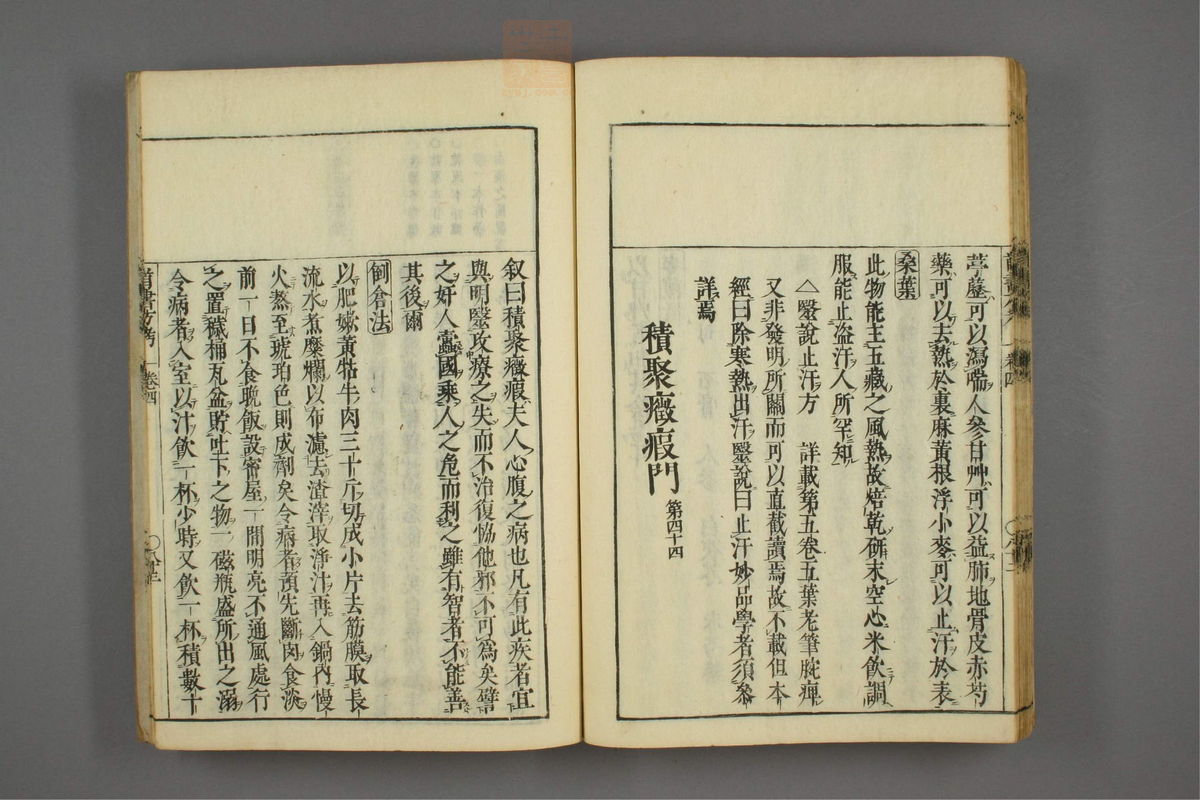 葶藶可以瀉喘人參甘艸可以益肺地骨皮赤芍
藥可以去熱於裏麻黃根浮小麥可以止汗於表
桑葉
此物能主五藏之風熱故焙乾研末空心米飲調
服能止盜汗人所罕知
△毉說止汗方 詳載第五卷五葉老筆腕痺
又非發明所關而可以直截讀焉故不載但本
經曰除寒熱出汗毉說曰止汗妙品學者須參
詳焉
積聚癥瘕門 第四十四
叙曰積聚癥瘕夫人心腹之病也凡有此疾者宜
與明毉攻療之失而不治復恊他邪不可為矣譬
之奸人蠹國乘人之危而利之雖有智者不能善
其後爾
倒倉法
以肥嫩黃牯牛肉三十斤切成小片去筋膜取長
流水煮糜爛以布濾去渣滓取淨汁再入鍋內慢
火熬至琥珀色則成劑矣令病者預先斷肉食淡
前一日不食晚飯設密屋一間明亮不通風處行
之置穢桶瓦盆貯吐下之物一磁瓶盛所出之溺
令病者入室以汁飲一杯少時又飲一杯積數十
卷四